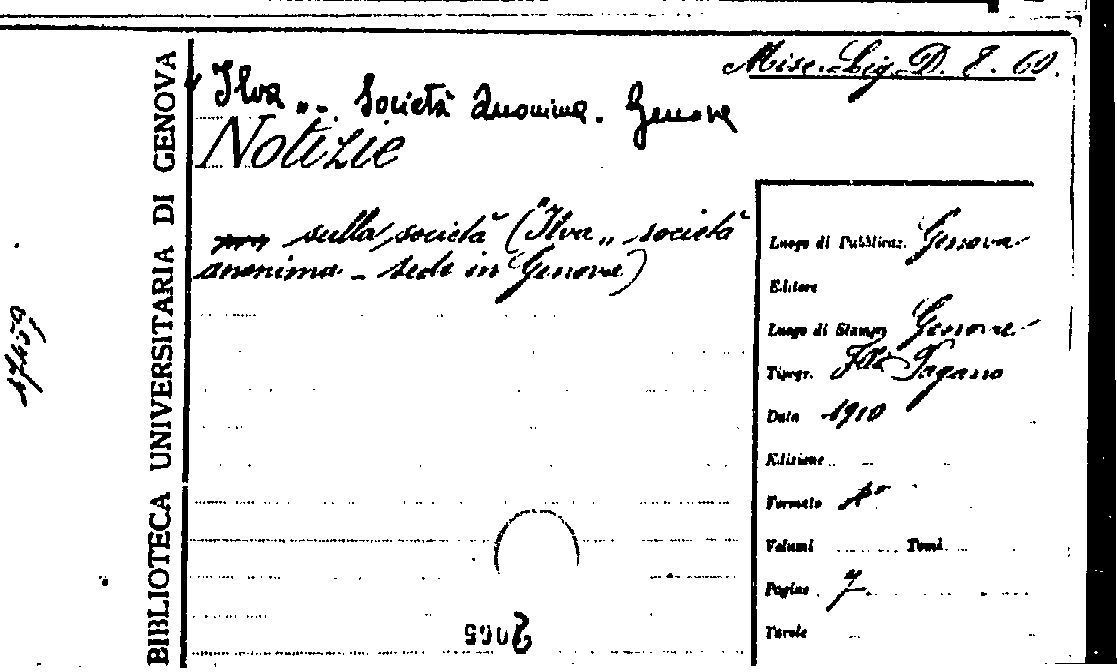 Misc. Lig. D. 8. 60.
"Ilva„. Società Anonima. Genova
Notizie
sulla società ("Ilva„ società
anonima - sede in Genova)
BIBLIOTECA UNIVERSITARIA DI GENOVA
Luogo di Pubblicaz. Genova
Editore
Luogo di Stampa Genova
Tipogr. Flli Pagano
Data 1910
Edizione
Formato 4°
Volumi Tomi
Pagine 7
Tavole
17459